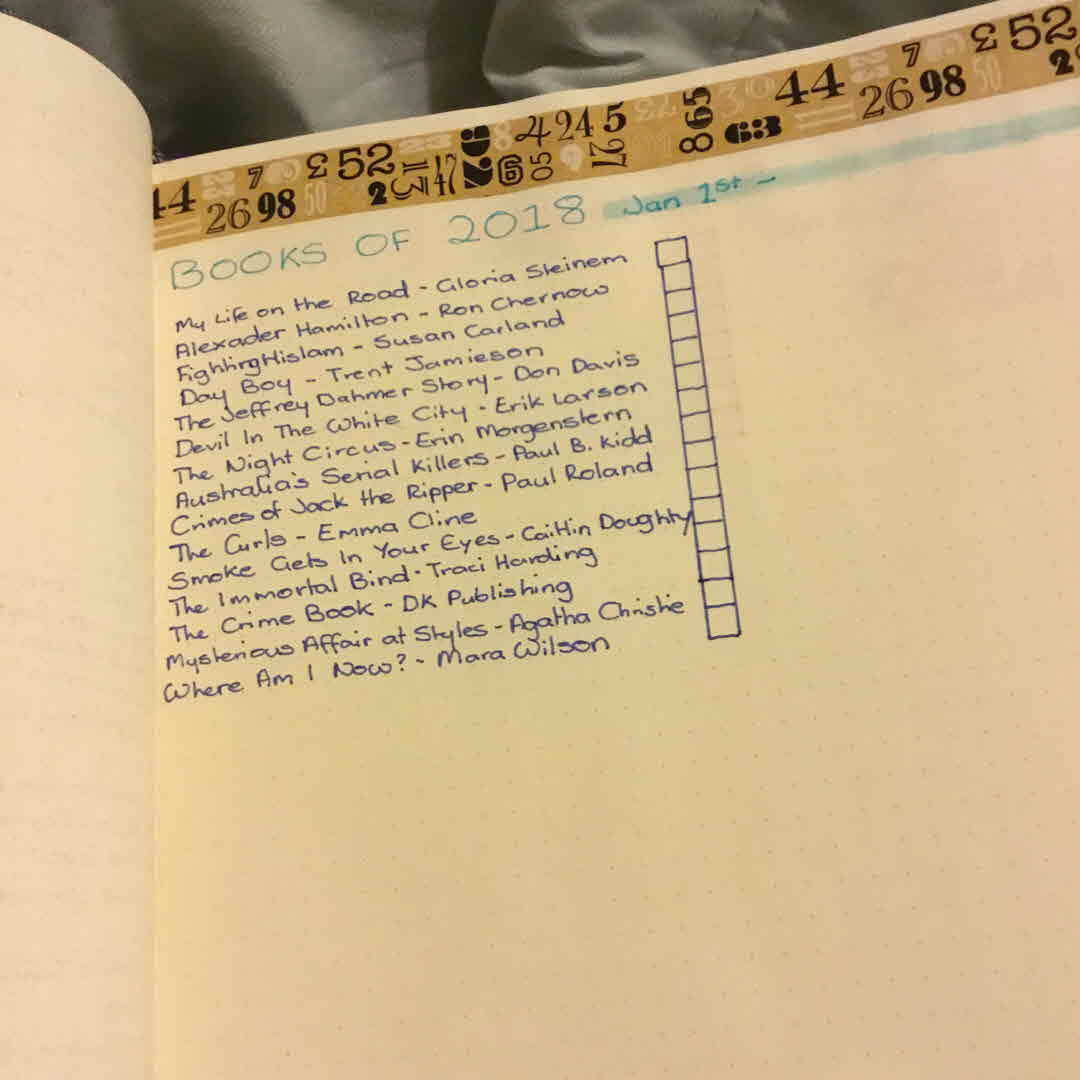 44 7 26 98 50 £ 52 2 13 47 6 05 4 24 5 27 9 73 865 63 30 44 111 22 7 26 98 £ 52 50 2
BOOKS OF 2018 Jan 1st -
My Life on the Road - Gloria Steinem
Alexader Hamilton - Ron Chernow
Fighting Hislam - Susan Carland
Day Boy - Trent Jamieson
The Jeffrey Dahmer Story - Don Davis
Devil In The White City - Erik Larson
The Night Circus - Erin Morgenstern
Australia's Serial Killers - Paul B. Kidd
Crimes of Jack the Ripper - Paul Roland
The Girls - Emma Cline
Smoke Gets In Your Eyes - Caitlin Doughty
The Immortal Bind - Traci Harding
The Crime Book - DK Publishing
Mysterious Affair at Styles - Agatha Christie
Where Am I Now? - Mara Wilson